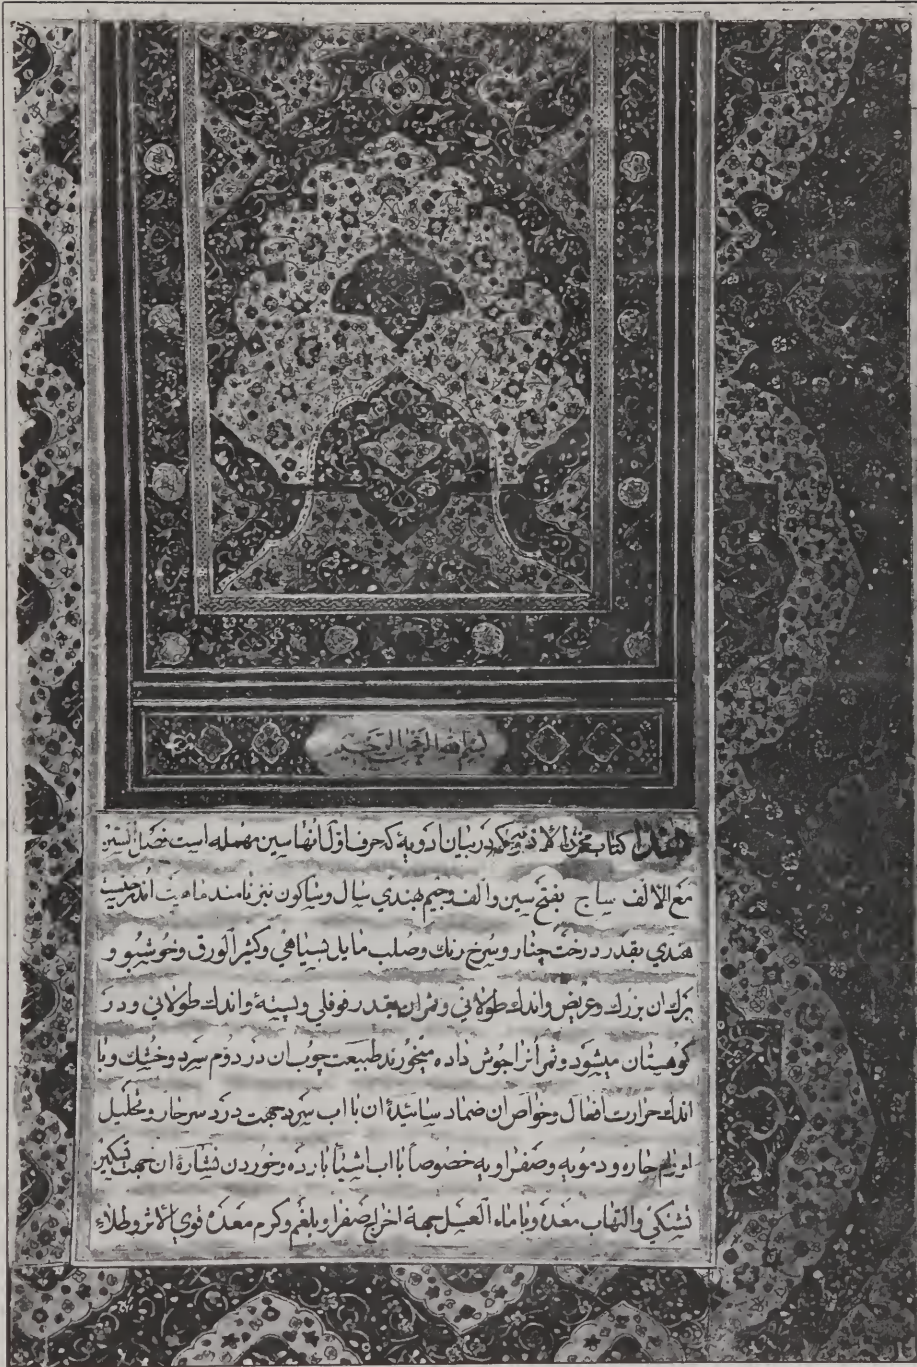 بسم الله الرحمن الرحيم
هذا كتاب مخزن الادویه که در بیان ادویهٔ که حرف اول آنها سین مهمله است فصل السین
مع الالف ساج بفتح سین و الف و جیم بهندی سال و ساکون نیز نامند ماهیت آن درختیست
هندی بقدر درخت چنار و سرخ رنك و صلب مایل بسیاهی و کثیر الورق و خوشبو و
برك ان بزرك و عریض و اندك طولانی و ثمر ان بقدر فوفلی و پسته و اندك طولانی و در
کوهستان میشود و ثمر آنرا جوش داده میخورند طبیعت چوب ان در دوم سرد و خشك و با
اندك حرارت افعال و خواص ان ضماد سائیدهٔ ان با اب سرد جهت درد سر حار و تحلیل
اورام حاره و دمویه و صفراویه خصوصاً با اب اشیأ بارده و خوردن نشارهٔ ان جهت تسکین
تشنکی و التهاب معده و با ماء العسل جهة اخراج صفرا و بلغم و کرم معده قوی الاثر و طلاء